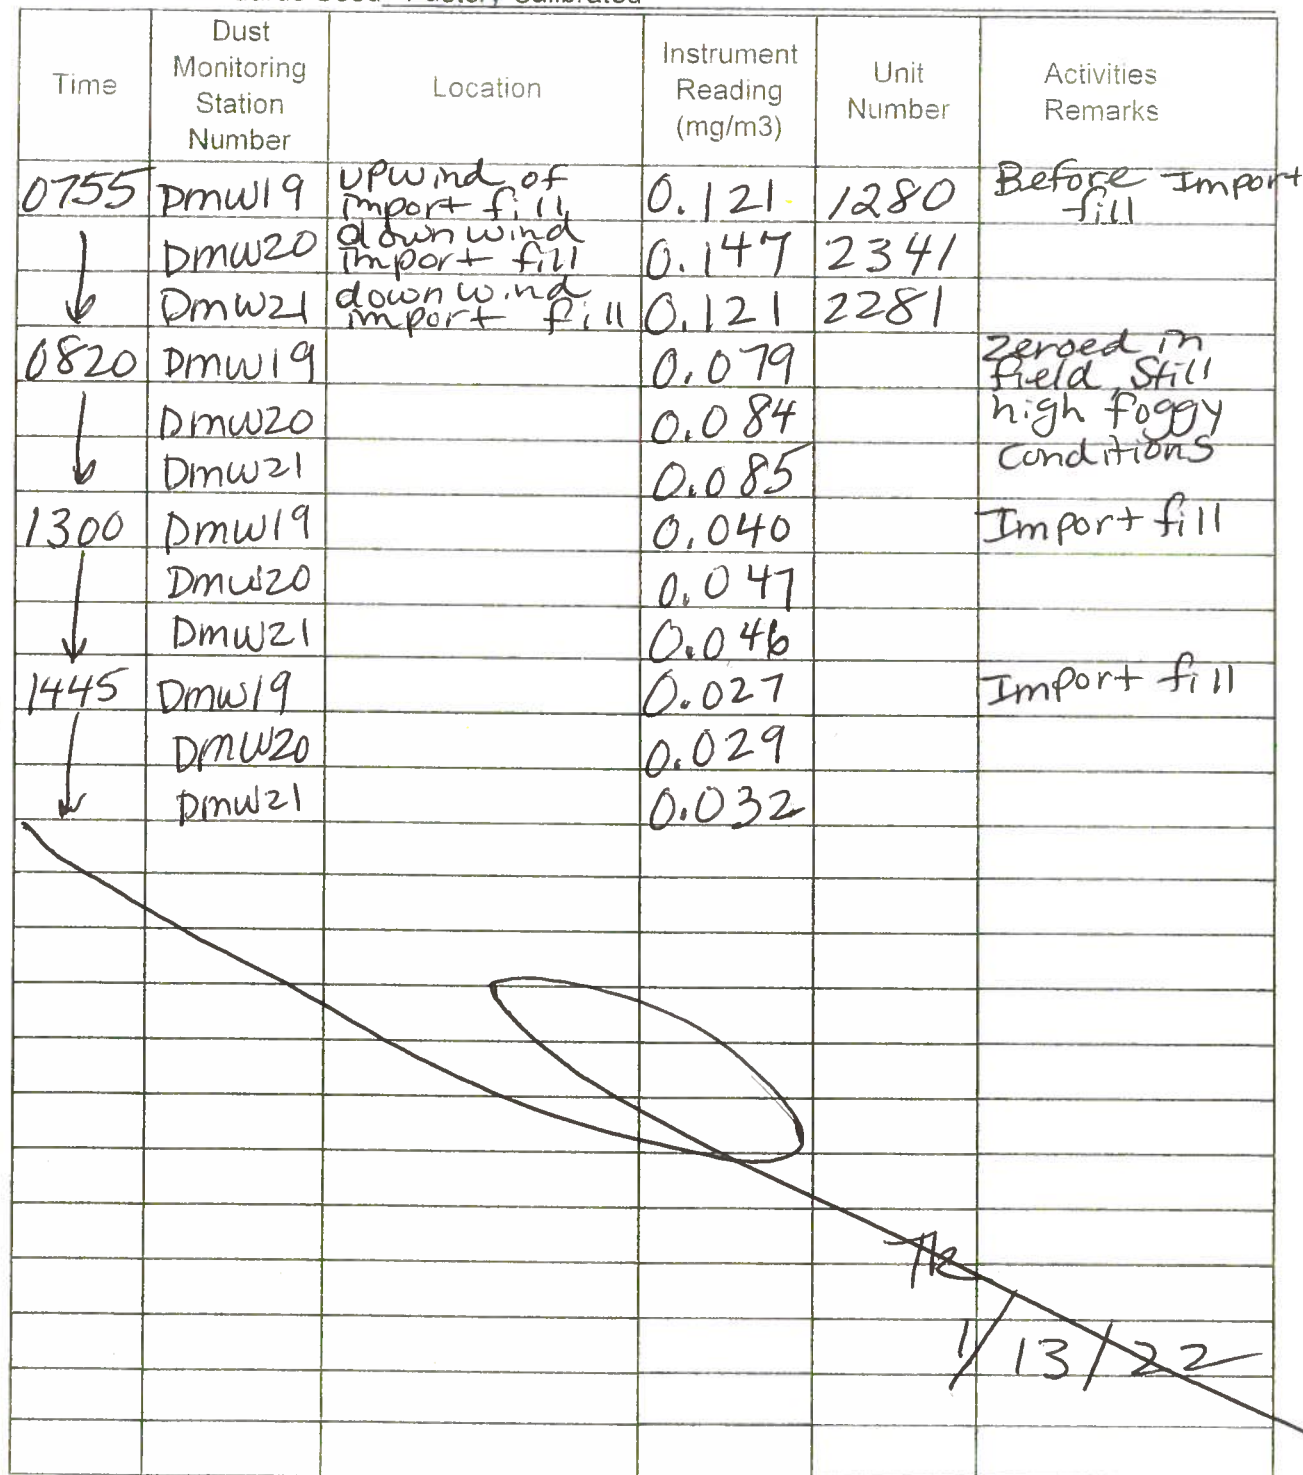 Factory Calibrated
Time | Dust Monitoring Station Number | Location | Instrument Reading (mg/m3) | Unit Number | Activities Remarks
0755 | Dmw19 | upwind of import fill | 0.121 | 1280 | Before Import fill
Dmw20 | downwind import fill | 0.147 | 2341
Dmw21 | downwind import fill | 0.121 | 2281
0820 | Dmw19 | 0.079 | zeroed in field, Still
Dmw20 | 0.084 | high foggy
Dmw21 | 0.085 | conditions
1300 | Dmw19 | 0.040 | Import fill
Dmw20 | 0.047
Dmw21 | 0.046
1445 | Dmw19 | 0.027 | Import fill
Dmw20 | 0.029
Dmw21 | 0.032
1/13/22